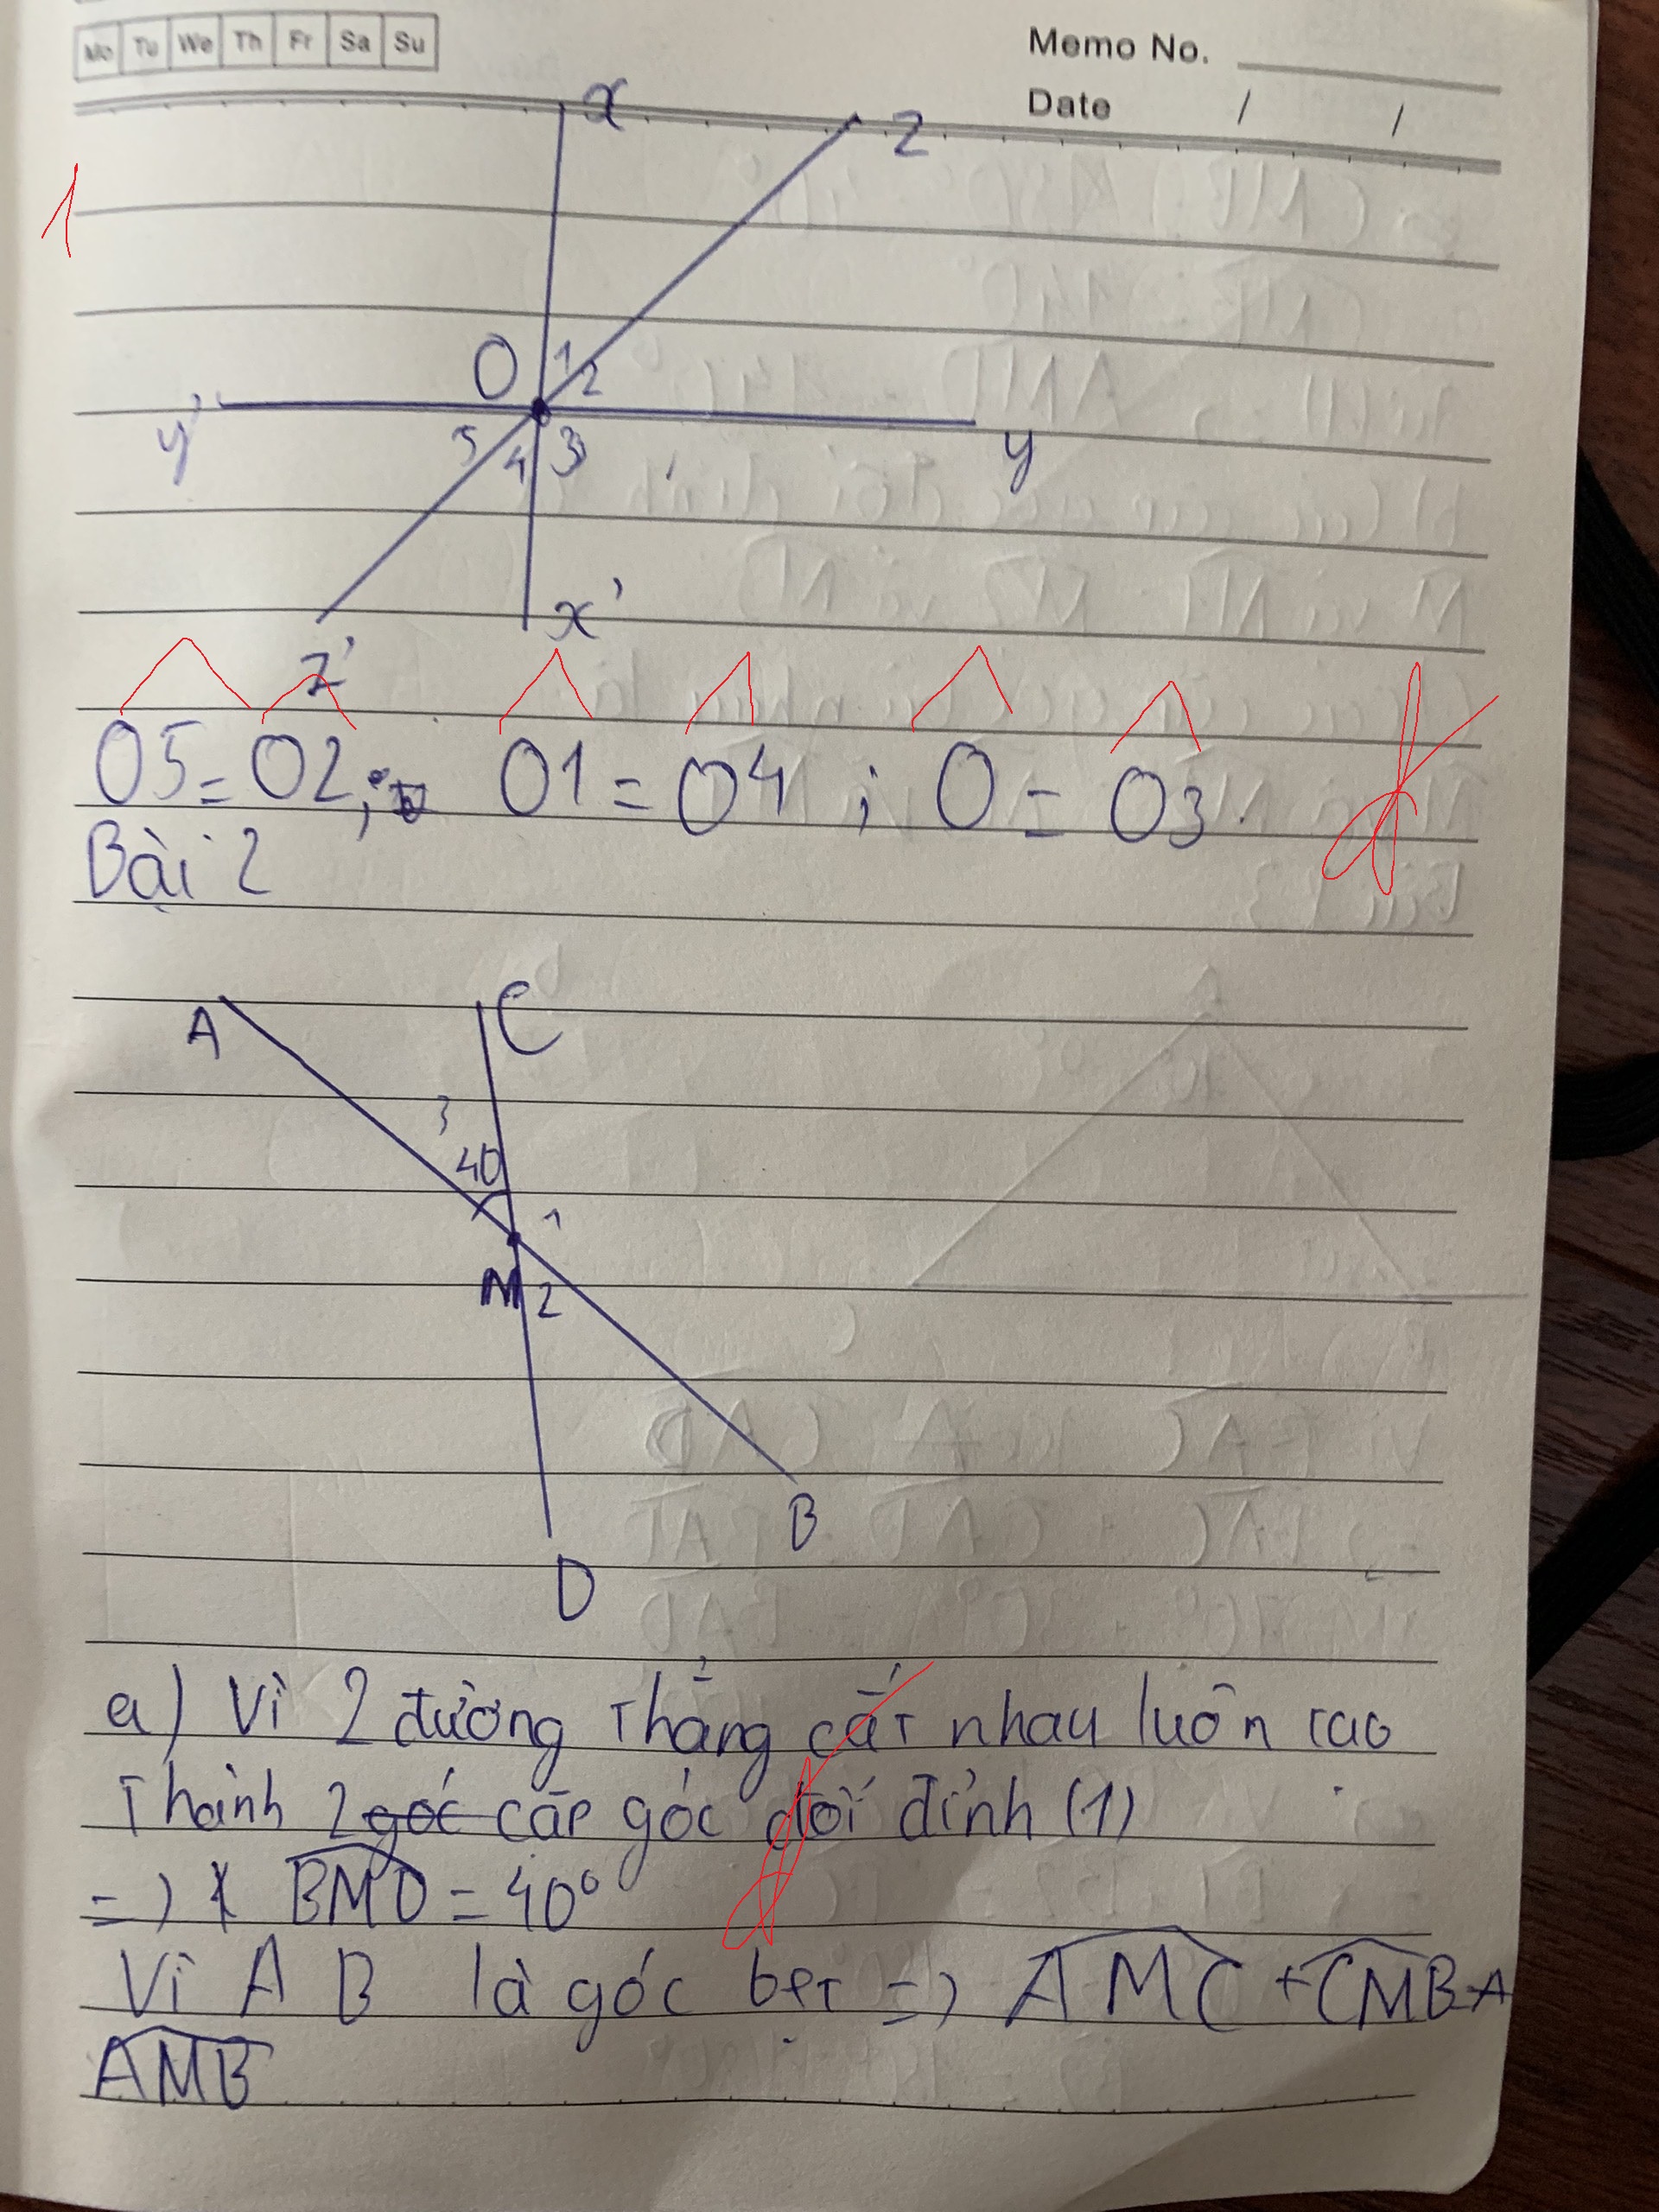 Mo Tu We Th Fr Sa Su
Memo No.
Date / /
1
x
z
O 1 2
y' y
5 4 3
x'
z'
O5 = O2 ; O1 = O4 ; O = O3
Bài 2
A C
3
40
1
M 2
B
D
a) Vì 2 đường thẳng cắt nhau luôn tạo
thành 2 góc cặp góc đối đỉnh (1)
=) BMD = 40°
Vì A B là góc bẹt =) AMC + CMB = A
AMB